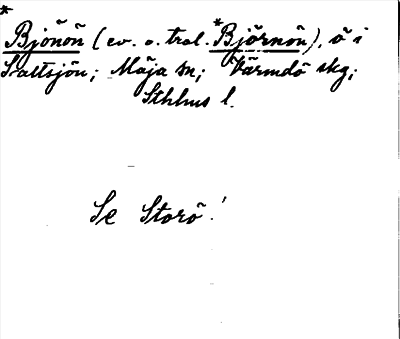 *
Björnön (ev. o. trol. *Björnön), ö i
Saltsjön; Möja sn; Värmdö skg;
Sthlms l.
Se Storö!